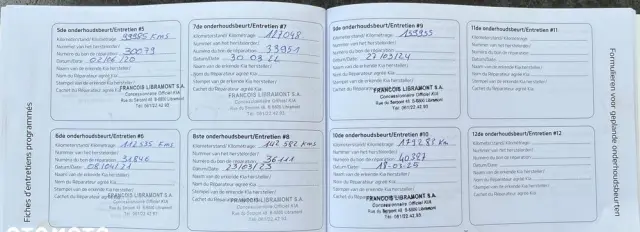 Fiches d'entretiens programmés
5de onderhoudsbeurt/Entretien #5
Kilometerstand/ Kilométrage: 99985 Kms
Nummer van het herstelorder/
Numéro du bon de réparation: 30079
Datum/Date: 02/06/20
Naam van de erkende Kia hersteller/
Nom du Réparateur agréé Kia
Stempel van de erkende Kia hersteller/
Cachet du Réparateur agréé Kia:
FRANCOIS LIBRAMONT S.A.
Concessionnaire Officiel KIA
Rue du Serpont 41 B-6800 Libramont
Tél. 061/22 42 93
6de onderhoudsbeurt/Entretien #6
Kilometerstand/ Kilométrage: 112535 Kms
Nummer van het herstelorder/
Numéro du bon de réparation: 31846
Datum/Date: 08/04/21
Naam van de erkende Kia hersteller/
Nom du Réparateur agréé Kia
Stempel van de erkende Kia hersteller/
Cachet du Réparateur agréé Kia:
7de onderhoudsbeurt/Entretien #7
Kilometerstand/ Kilométrage: 127048
Nummer van het herstelorder/
Numéro du bon de réparation: 33951
Datum/Date: 30.08.22
Naam van de erkende Kia hersteller/
Nom du Réparateur agréé Kia
Stempel van de erkende Kia hersteller/
Cachet du Réparateur agréé Kia:
FRANCOIS LIBRAMONT S.A.
Concessionnaire Officiel KIA
Rue du Serpont 41 B-6800 Libramont
Tél. 061/22 42 93
8ste onderhoudsbeurt/Entretien #8
Kilometerstand/ Kilométrage: 142582 kms
Nummer van het herstelorder/
Numéro du bon de réparation: 36111
Datum/Date: 23/03/23
Naam van de erkende Kia hersteller/
Nom du Réparateur agréé Kia
Stempel van de erkende Kia hersteller/
Cachet du Réparateur agréé Kia:
FRANCOIS LIBRAMONT S.A.
Concessionnaire Officiel KIA
Rue du Serpont 41 B-6800 Libramont
Tél. 061/22 42 93
9de onderhoudsbeurt/Entretien #9
Kilometerstand/ Kilométrage: 159955
Nummer van het herstelorder/
Numéro du bon de réparation:
Datum/Date: 27/03/24
Naam van de erkende Kia hersteller/
Nom du Réparateur agréé Kia
Stempel van de erkende Kia hersteller/
Cachet du Réparateur agréé Kia:
FRANCOIS LIBRAMONT S.A.
Concessionnaire Officiel KIA
Rue du Serpont 41 B-6800 Libramont
Tél. 061/22 42 93
10de onderhoudsbeurt/Entretien #10
Kilometerstand/ Kilométrage: 179288 Km
Nummer van het herstelorder/
Numéro du bon de réparation: 40387
Datum/Date: 18-03-25
Naam van de erkende Kia hersteller/
Nom du Réparateur agréé Kia
Stempel van de erkende Kia hersteller/
Cachet du Réparateur agréé Kia:
FRANCOIS LIBRAMONT S.A.
Concessionnaire Officiel KIA
Rue du Serpont 41 B-6800 Libramont
Tél. 061/22 42 93
11de onderhoudsbeurt/Entretien #11
Kilometerstand/ Kilométrage:
Nummer van het herstelorder/
Numéro du bon de réparation:
Datum/Date:
Naam van de erkende Kia hersteller/
Nom du Réparateur agréé Kia
Stempel van de erkende Kia hersteller/
Cachet du Réparateur agréé Kia:
12de onderhoudsbeurt/Entretien #12
Kilometerstand/ Kilométrage:
Nummer van het herstelorder/
Numéro du bon de réparation:
Datum/Date:
Naam van de erkende Kia hersteller/
Nom du Réparateur agréé Kia
Stempel van de erkende Kia hersteller/
Cachet du Réparateur agréé Kia:
Formulieren voor geplande onderhoudsbeurten
OTOMOTO